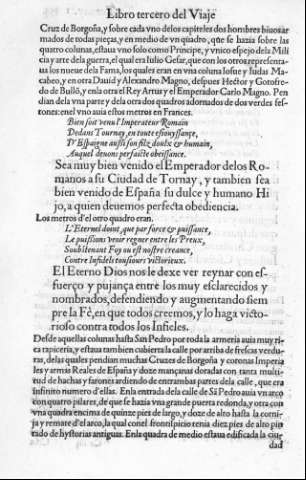 Libro tercero del Viaje
Cruz de Borgoña, y sobre cada vno de los capiteles dos hombres biuos ar
mados de todas pieças, y en medio de vn quadro, que se hazia sobre las
quatro colunas, estaua vno solo como Principe, y vnico espejo dela Mili
cia y arte dela guerra, el qual era Iulio Cesar, que con los otros representa-
ua los nueue dela Fama, los quales eran en vna coluna Iosue y Iudas Ma-
cabeo, y en otra Dauid y Alexandro Magno, despues Hector y Gotofre-
do de Bullõ, y enla otra el Rey Artur y el Emperador Carlo Magno. Pen
dian dela vna parte y dela otra dos quadros adornados de dos verdes fes-
tones: enel vno auia estos metros en Frances.
Bien soit venu l'Imperateur Romain
Dedans Tournay, en toute esiouyssançe,
D'Espaigne aussi son filz doulx & humain,
Auquel deuons perfaicte obeissance.
Sea muy bien venido el Emperador delos Ro-
manos a su Ciudad de Tornay, y tambien sea
bien venido de España su dulce y humano Hi
jo, a quien deuemos perfecta obediencia.
Los metros d'el otro quadro eran.
L'Eternel doint, que par force & puissance,
Le puissions veoir regner entre les Preux,
Soubstenant Foy ou est nostre creance,
Contre Infidels tousiours victorieux.
El Eterno Dios nos le dexe ver reynar con es-
fuerço y pujança entre los muy esclarecidos y
nombrados, defendiendo y augmentando siem
pre la Fê, en que todos creemos, y lo haga victo-
rioso contra todos los Infieles.
Desde aquellas colunas hasta San Pedro por toda la armeria auia muy ri-
ca tapiceria, y estaua tambien cubierta la calle por arriba de frescas verdu-
ras, delas quales pendian muchas Cruzes de Borgoña y coronas Imperia
les y armas Reales de España y doze mançanas doradas con tanta multi-
tud de hachas y farones ardiendo de entrambas partes dela calle, que era
infinito numero d'ellas. En la entrada dela calle de Sã Pedro auia vn arco
con quatro pilares, de que se hazia vna grande puerta redonda, y otra con
vna quadra encima de quinze pies de largo, y doze de alto hasta la corni-
ja y remate d'el arco, la qual conel frontispicio tenia diez pies de alto pin
tado de hystorias antiguas. En la quadra de medio estaua edificada la ciu-
dad